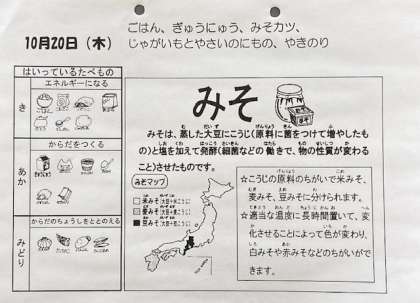 10月20日（木）
ごはん、ぎゅうにゅう、みそカツ、
じゃがいもとやさいのにもの、やきのり
はいっているたべもの
エネルギーになる
き
からだをつくる
あか
からだのちょうしをととのえる
みどり
みそ
みそは、蒸した大豆にこうじ(原料に菌をつけて増やしたも
の)と塩を加えて発酵(細菌などの働きで、物の性質が変わる
こと)させたものです。
みそマップ
米みそ
麦みそ
豆みそ
☆こうじの原料のちがいで米みそ、
麦みそ、豆みそに分けられます。
☆適当な温度に長時間置いて、変
化させることによって色が変わり、
白みそや赤みそなどのちがいがで
きます。